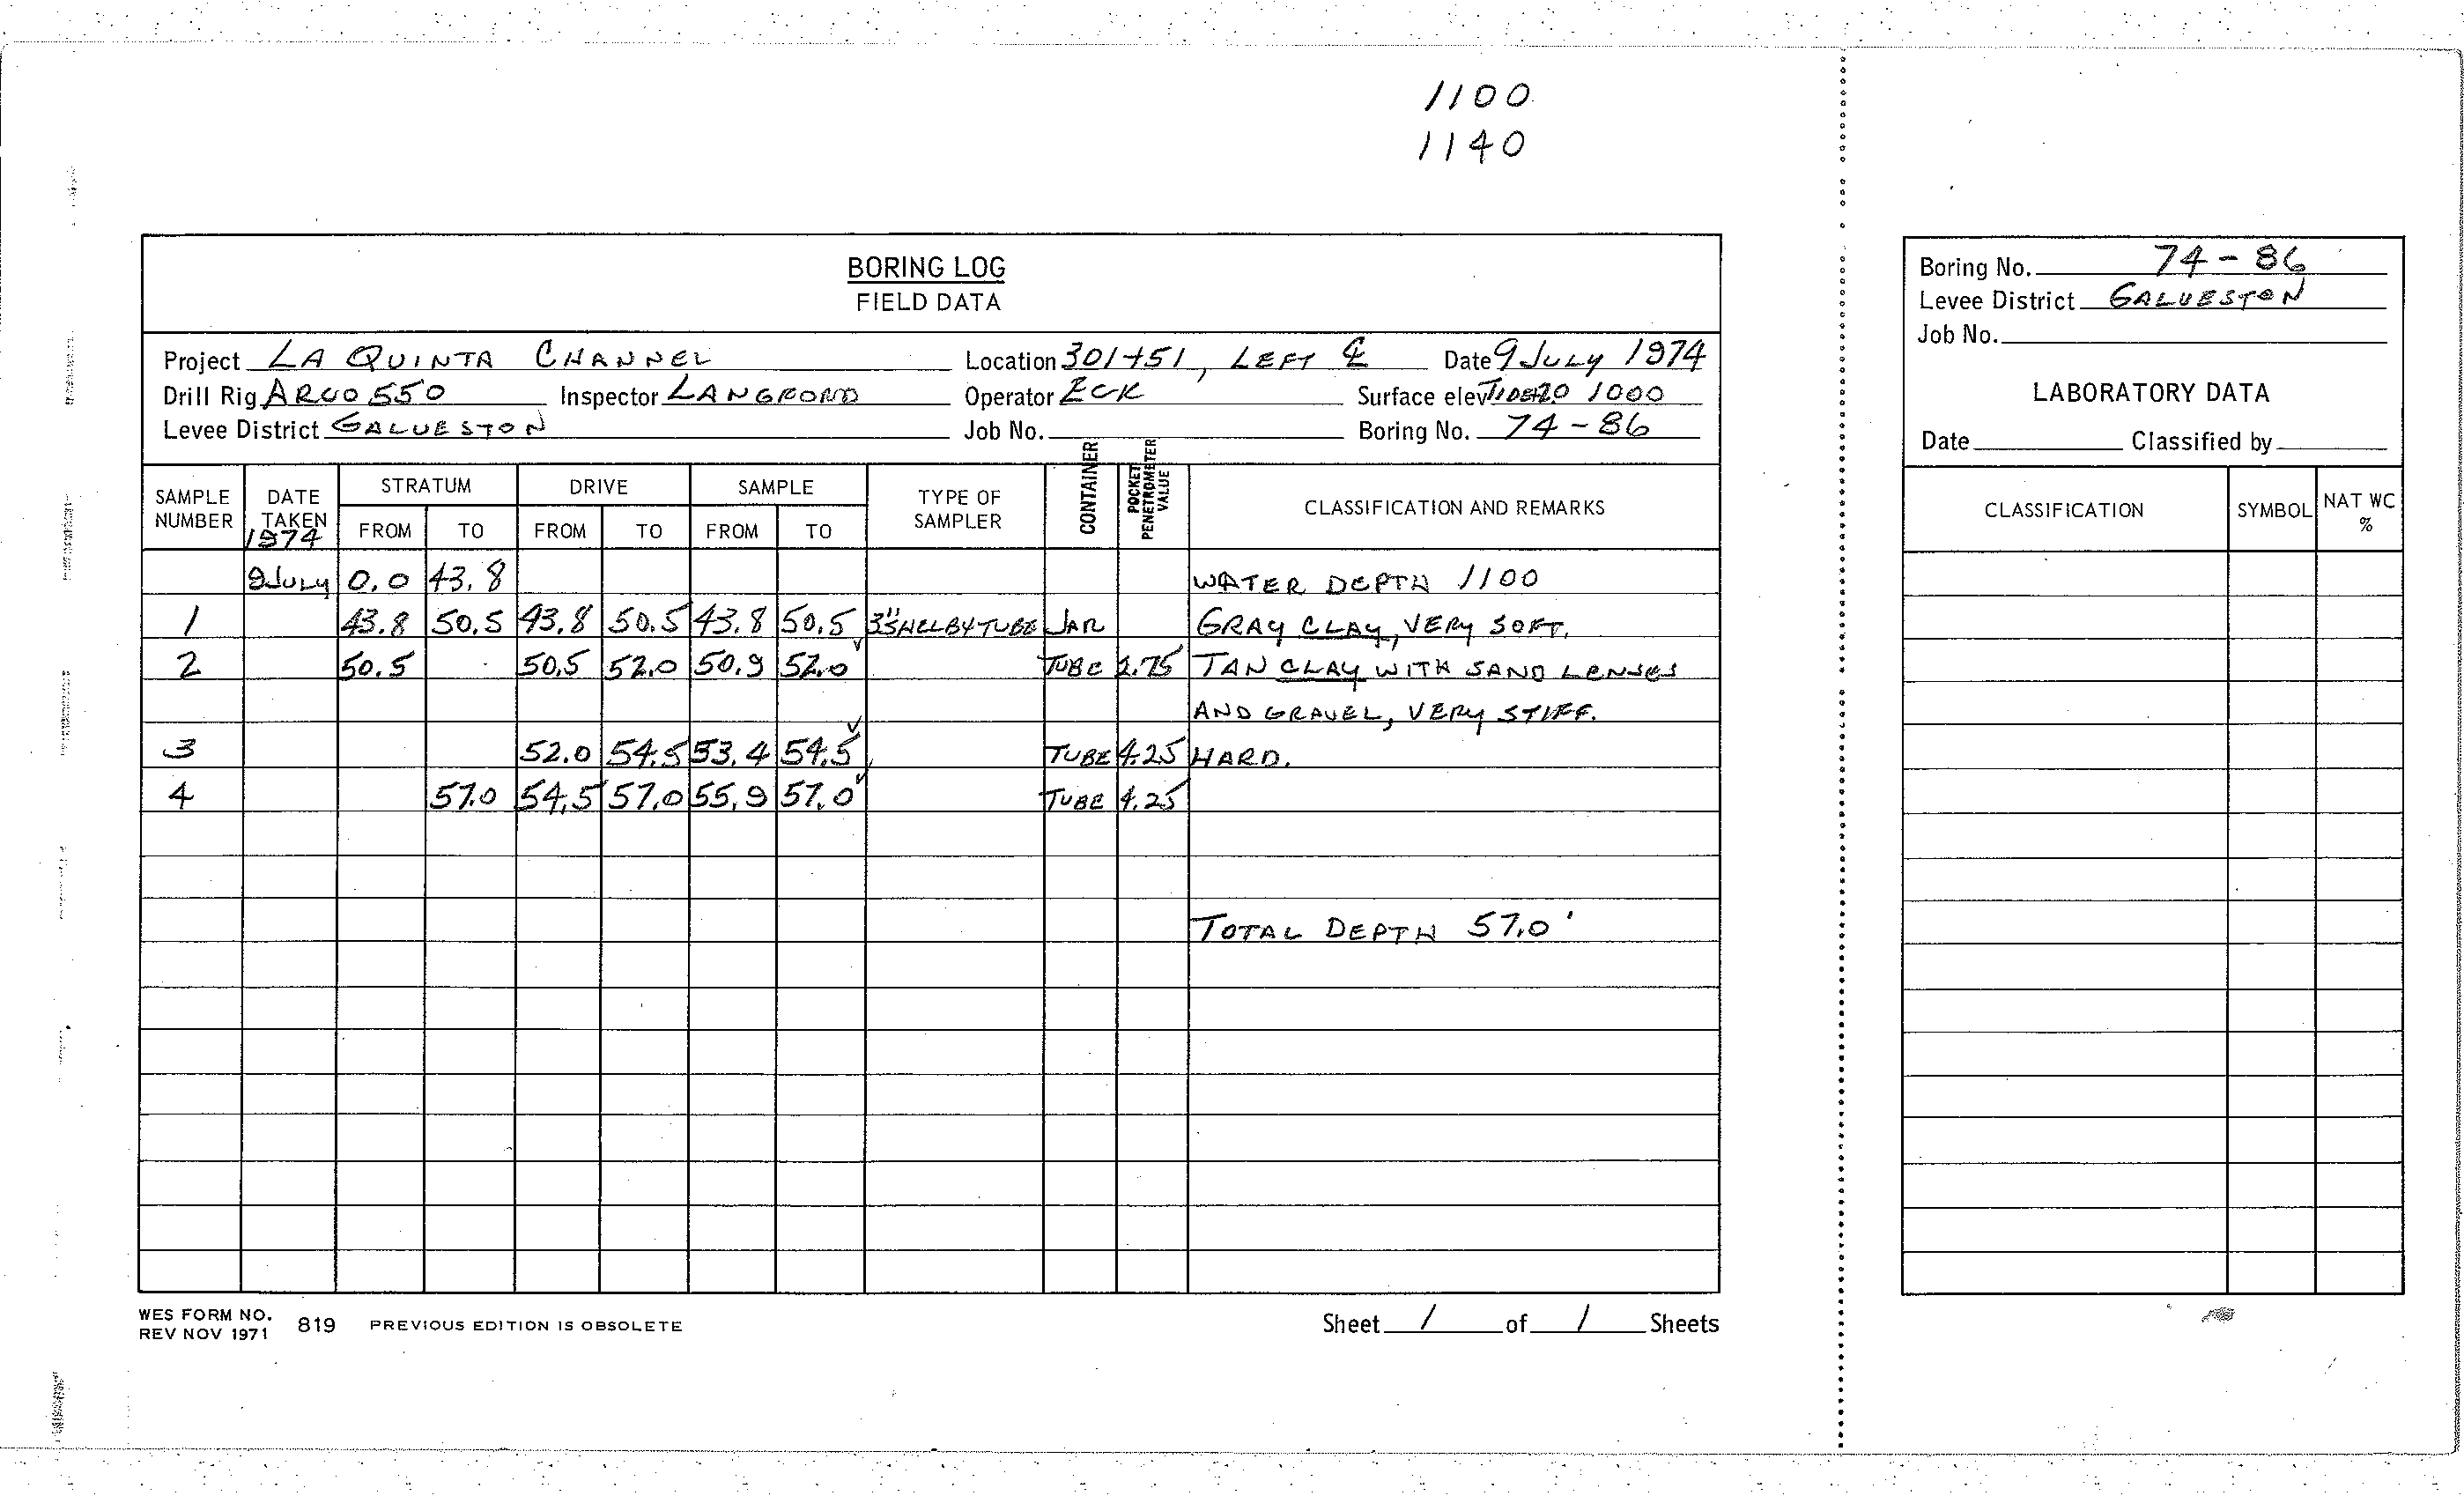 1100
1140
BORING LOG
FIELD DATA
Project LA QUINTA CHANNEL Location 301+51, LEFT ℄ Date 9 JULY 1974
Drill Rig ARCO 550 Inspector LANGFORD Operator ECK Surface elev TIDE+2.0 1000
Levee District GALVESTON Job No. Boring No. 74-86
SAMPLE NUMBER DATE TAKEN 1974 STRATUM FROM TO DRIVE FROM TO SAMPLE FROM TO TYPE OF SAMPLER CONTAINER POCKET PENETROMETER VALUE CLASSIFICATION AND REMARKS
9 JULY 0.0 43.8 WATER DEPTH 1100
1 43.8 50.5 43.8 50.5 43.8 50.5 3" SHELBY TUBE JAR GRAY CLAY, VERY SOFT.
2 50.5 50.5 52.0 50.9 52.0 TUBE 2.75 TAN CLAY WITH SAND LENSES
AND GRAVEL, VERY STIFF.
3 52.0 54.5 53.4 54.5 TUBE 4.25 HARD.
4 57.0 54.5 57.0 55.9 57.0 TUBE 4.25
TOTAL DEPTH 57.0'
WES FORM NO. 819 PREVIOUS EDITION IS OBSOLETE
REV NOV 1971
Sheet 1 of 1 Sheets
Boring No. 74-86
Levee District GALVESTON
Job No.
LABORATORY DATA
Date Classified by
CLASSIFICATION SYMBOL NAT WC %